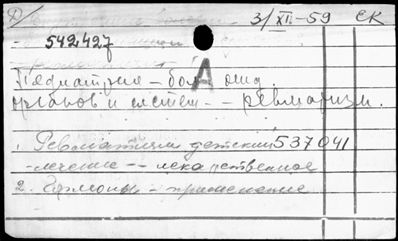 Д/ 3/XII-59 СК
542427
А
Педиатрия - бол. отд.
органов и систем - - ревматизм.
1. Ревматизм детский 537041
- лечение - - лекарственное
2. Гормоны - применение